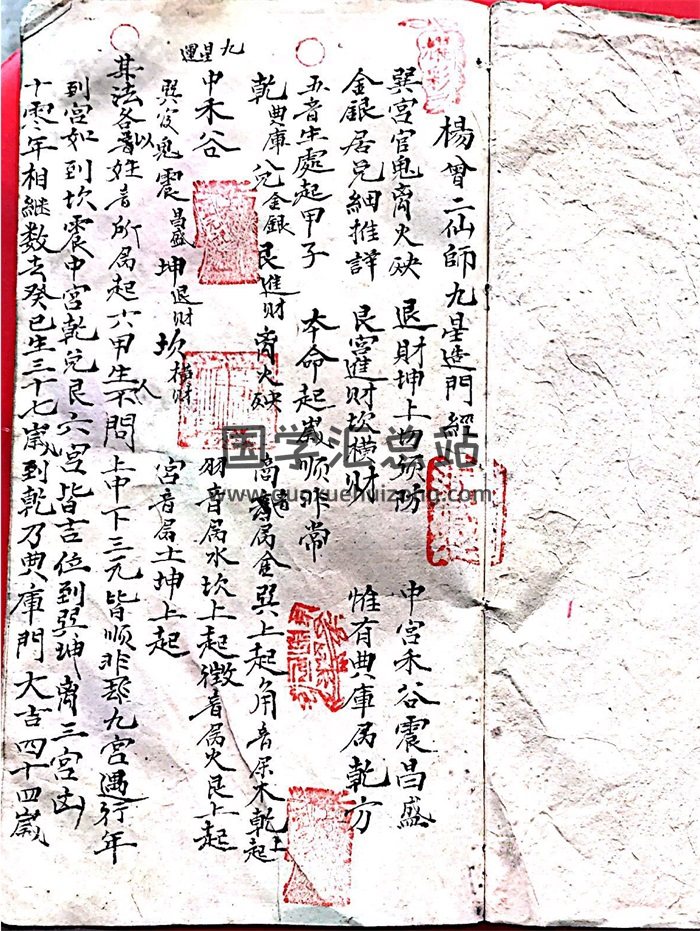 楊曾二仙師九星造門經
巽宮官鬼离火殃 退財坤上切須防 中宮禾谷震昌盛
金銀居兑細推詳 艮宮進財坎横財 惟有典庫属乾方
五音生處起甲子 本命起歲順非常
乾典庫 兑金銀 艮進財 离火殃 商音属金巽上起角音属木乾上起
九星運
中禾谷 羽音属水坎上起徵音属火艮上起
巽官鬼 震昌盛 坤退財 坎横財 宮音属土坤上起
其法各以音姓音所属起六甲生人不問上中下三元皆順飛九宮遇行年
到宮如到坎震中宮乾兑艮六宮皆吉位到巽坤离三宮凶
十零年相継数去癸巳生三十七歲到乾乃典庫門大吉四十四歲
国学汇总站
www.guoxuehuizong.com